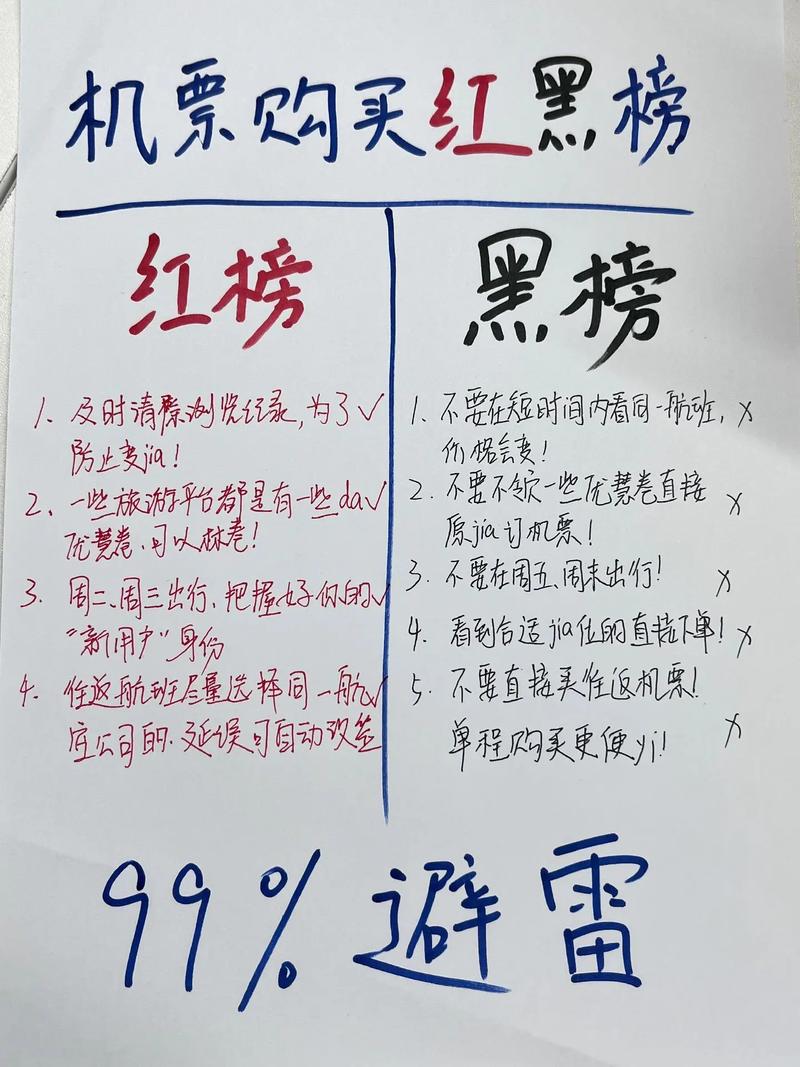 机票购买红黑榜
红榜
1、及时清除浏览纪录,为了√
防止变jia!
2、一些旅游平台都是有一些da√
优慧卷、可以林卷!
3、周二、周三出行、把握好你的√
“新用户”身份
4、往返航班尽量选择同一航√
空公司的、延误可自动改签
黑榜
1、不要在短时间内看同一航班,×
价格会变!
2、不要不领一些优慧卷直接 ×
原jia订机票!
3、不要在周五、周末出行! ×
4、看到合适jia位的直接下单!×
5、不要直接买往返机票!
单程购买更便yi! ×
99%避雷